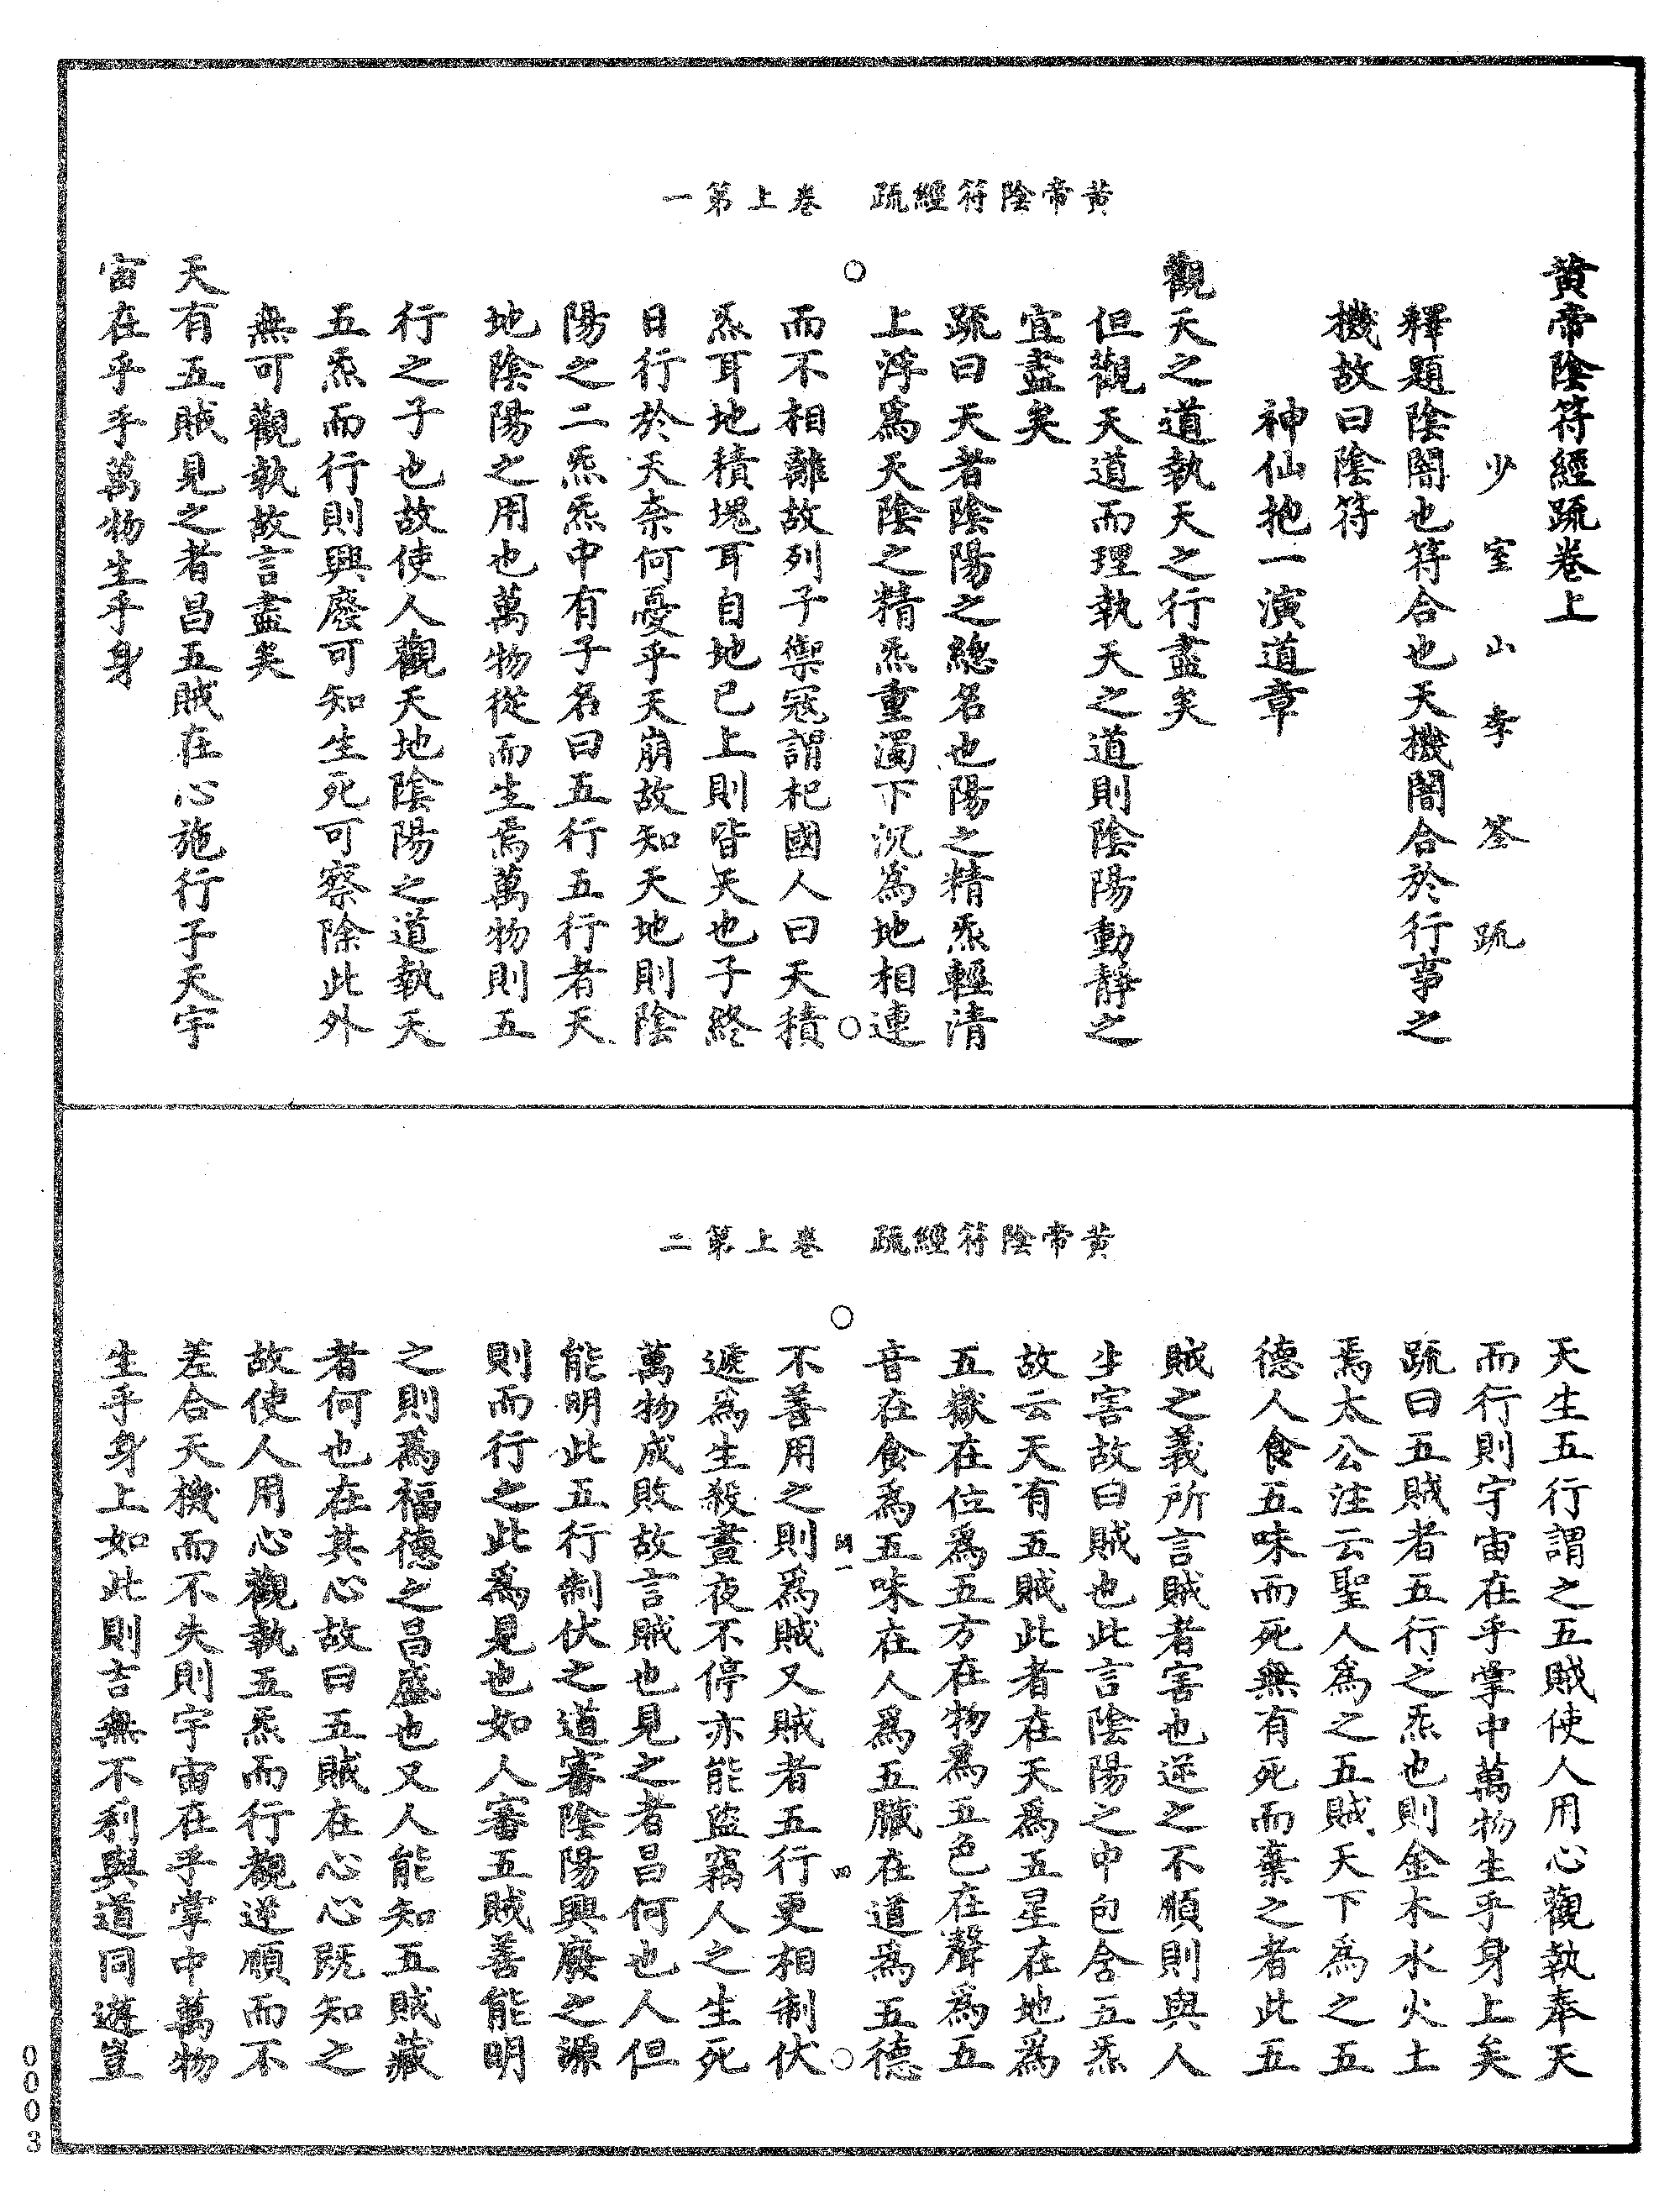 黄帝陰符經疏　卷上第一
黄帝陰符經疏卷上
少室山李筌疏
釋題陰闇也符合也天機闇合於行事之
機故曰陰符
神仙抱一演道章
觀天之道執天之行盡矣
但觀天道而理執天之道則陰陽動靜之
宜盡矣
疏曰天者陰陽之總名也陽之精炁輕清
上浮爲天陰之精炁重濁下沉爲地相連
而不相離故列子禦冠謂杞國人曰天積
炁耳地積塊耳自地已上則皆天也子終
日行於天奈何憂乎天崩故知天地則陰
陽之二炁炁中有子名曰五行五行者天
地陰陽之用也萬物從而生焉萬物則五
行之子也故使人觀天地陰陽之道執天
五炁而行則興廢可知生死可察除此外
無可觀執故言盡矣
天有五賊見之者昌五賊在心施行于天宇
宙在乎手萬物生乎身
黄帝陰符經疏　卷上第二
天生五行謂之五賊使人用心觀執奉天
而行則宇宙在乎掌中萬物生乎身上矣
疏曰五賊者五行之炁也則金木水火土
焉太公注云聖人爲之五賊天下爲之五
德人食五味而死無有死而棄之者此五
賊之義所言賊者害也逆之不順則與人
生害故曰賊也此言陰陽之中包含五炁
故云天有五賊此者在天爲五星在地爲
五嶽在位爲五方在物爲五色在聲爲五
音在食爲五味在人爲五臟在道爲五德
不善用之則爲賊又賊者五行更相制伏
遞爲生殺晝夜不停亦能盜竊人之生死
萬物成敗故言賊也見之者昌何也人但
能明此五行制伏之道審陰陽興廢之源
則而行之此爲見也如人審五賊善能明
之則爲福德之昌盛也又人能知五賊藏
者何也在其心故曰五賊在心心既知之
故使人用心觀執五炁而行觀逆順而不
差合天機而不失則宇宙在乎掌中萬物
生乎身上如此則吉無不利與道同遊豈
0003